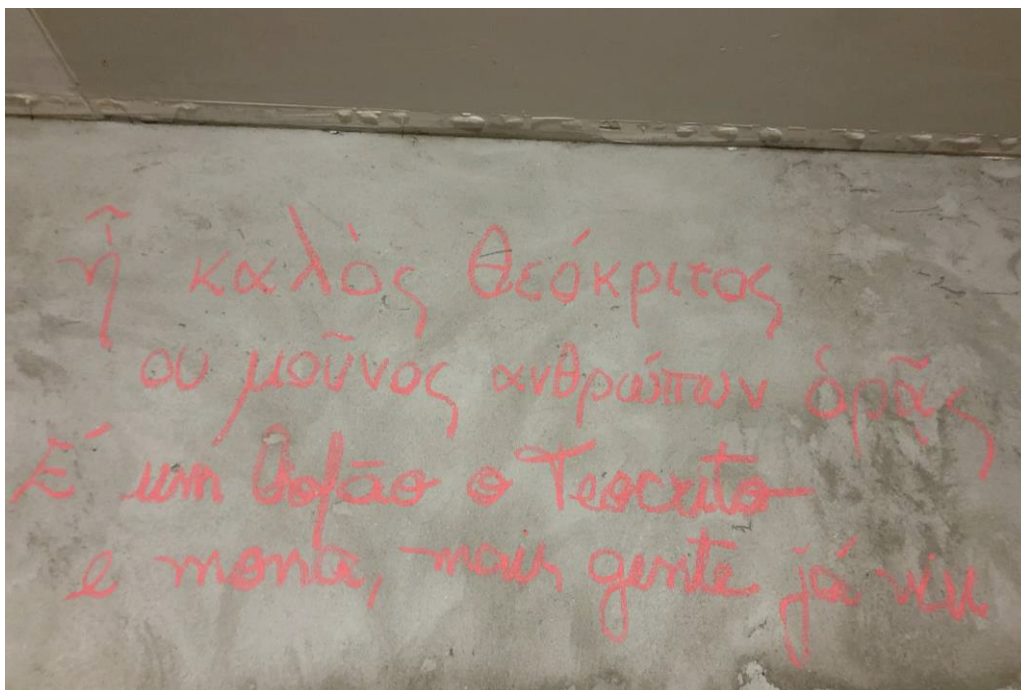 ἦ καλὸς Θεόκριτος
ου μοῦνος ανθρώπων ὁρᾷς
É um bofão o Teocrito
e mona, mais gente já viu